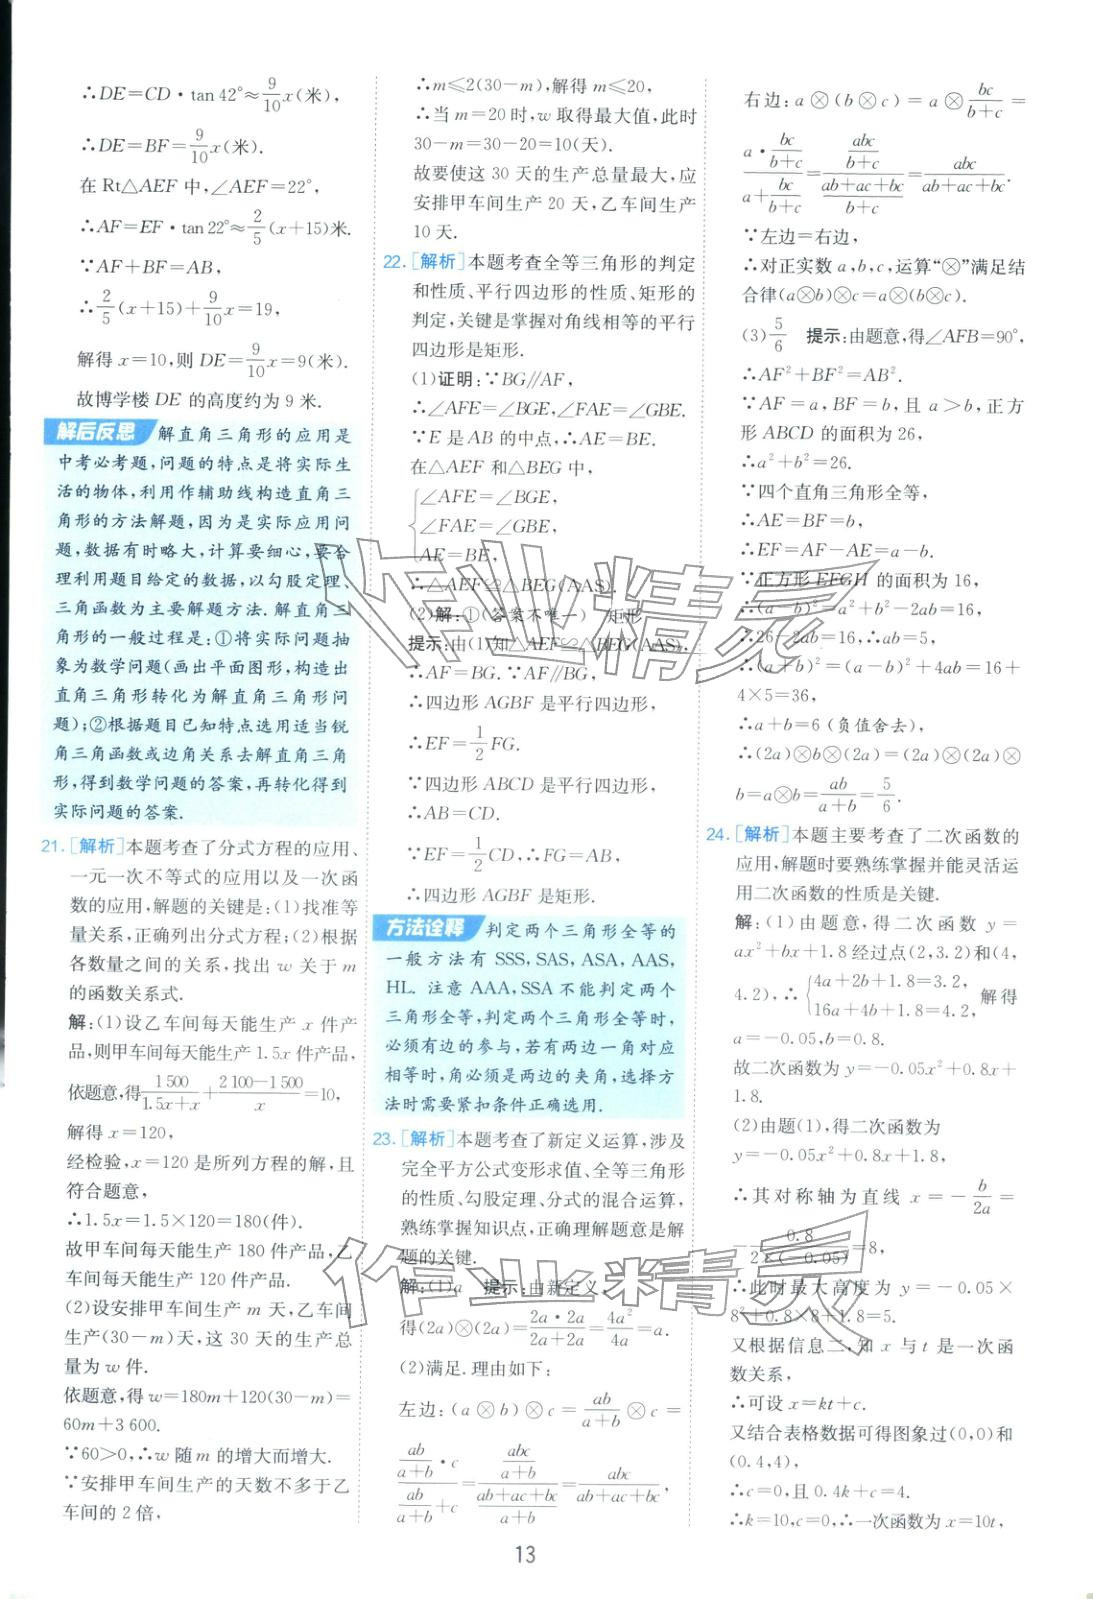 ∴DE=CD·tan 42°≈9/10x(米),
∴DE=BF=9/10x(米).
在 Rt△AEF 中,∠AEF=22°,
∴AF=EF·tan 22°≈2/5(x+15)米.
∵AF+BF=AB,
∴2/5(x+15)+9/10x=19,
解得 x=10,则 DE=9/10x=9(米).
故博学楼 DE 的高度约为 9 米.
解后反思 解直角三角形的应用是
中考必考题,问题的特点是将实际生
活的物体,利用作辅助线构造直角三
角形的方法解题,因为是实际应用问
题,数据有时略大,计算要细心,要合
理利用题目给定的数据,以勾股定理、
三角函数为主要解题方法.解直角三
角形的一般过程是:①将实际问题抽
象为数学问题(画出平面图形,构造出
直角三角形转化为解直角三角形问
题);②根据题目已知特点选用适当锐
角三角函数或边角关系去解直角三角
形,得到数学问题的答案,再转化得到
实际问题的答案.
21.[解析]本题考查了分式方程的应用、
一元一次不等式的应用以及一次函
数的应用,解题的关键是:(1)找准等
量关系,正确列出分式方程;(2)根据
各数量之间的关系,找出 w 关于 m
的函数关系式.
解:(1)设乙车间每天能生产 x 件产
品,则甲车间每天能生产 1.5x 件产品,
依题意,得1 500/(1.5x+x)+(2 100-1 500)/x=10,
解得 x=120,
经检验,x=120 是所列方程的解,且
符合题意,
∴1.5x=1.5×120=180(件).
故甲车间每天能生产 180 件产品,乙
车间每天能生产 120 件产品.
(2)设安排甲车间生产 m 天,乙车间
生产(30-m)天,这 30 天的生产总
量为 w 件.
依题意,得 w=180m+120(30-m)=
60m+3 600.
∵60>0,∴w 随 m 的增大而增大.
∵安排甲车间生产的天数不多于乙
车间的 2 倍,
∴m≤2(30-m),解得 m≤20,
∴当 m=20 时,w 取得最大值,此时
30-m=30-20=10(天).
故要使这 30 天的生产总量最大,应
安排甲车间生产 20 天,乙车间生产
10 天.
22.[解析]本题考查全等三角形的判定
和性质、平行四边形的性质、矩形的
判定,关键是掌握对角线相等的平行
四边形是矩形.
(1)证明:∵BG∥AF,
∴∠AFE=∠BGE,∠FAE=∠GBE.
∵E 是 AB 的中点,∴AE=BE.
在△AEF 和△BEG 中,
∠AFE=∠BGE,
∠FAE=∠GBE,
AE=BE,
∴△AEF≌△BEG(AAS).
(2)解:①(答案不唯一) 矩形
提示:由(1)知△AEF≌△BEG(AAS),
∴AF=BG.∵AF∥BG,
∴四边形 AGBF 是平行四边形,
∴EF=1/2FG.
∵四边形 ABCD 是平行四边形,
∴AB=CD.
∵EF=1/2CD,∴FG=AB,
∴四边形 AGBF 是矩形.
方法诠释 判定两个三角形全等的
一般方法有 SSS,SAS,ASA,AAS,
HL. 注意 AAA,SSA 不能判定两个
三角形全等,判定两个三角形全等时,
必须有边的参与,若有两边一角对应
相等时,角必须是两边的夹角,选择方
法时需要紧扣条件正确选用.
23.[解析]本题考查了新定义运算,涉及
完全平方公式变形求值、全等三角形
的性质、勾股定理、分式的混合运算,
熟练掌握知识点,正确理解题意是解
题的关键.
解:(1)a 提示:由新定义,
得(2a)⊗(2a)=(2a·2a)/(2a+2a)=4a²/4a=a.
(2)满足.理由如下:
左边:(a⊗b)⊗c=ab/(a+b)⊗c=
(ab/(a+b)·c)/(ab/(a+b)+c)=(abc/(a+b))/((ab+ac+bc)/(a+b))=abc/(ab+ac+bc),
右边:a⊗(b⊗c)=a⊗bc/(b+c)=
(a·bc/(b+c))/(a+bc/(b+c))=(abc/(b+c))/((ab+ac+bc)/(b+c))=abc/(ab+ac+bc).
∵左边=右边,
∴对正实数 a,b,c,运算“⊗”满足结
合律(a⊗b)⊗c=a⊗(b⊗c).
(3)5/6 提示:由题意,得∠AFB=90°,
∴AF²+BF²=AB².
∵AF=a,BF=b,且 a>b,正方
形 ABCD 的面积为 26,
∴a²+b²=26.
∵四个直角三角形全等,
∴AE=BF=b,
∴EF=AF-AE=a-b.
∵正方形 EFGH 的面积为 16,
∴(a-b)²=a²+b²-2ab=16,
∴26-2ab=16,∴ab=5,
∴(a+b)²=(a-b)²+4ab=16+
4×5=36,
∴a+b=6(负值舍去),
∴(2a)⊗b⊗(2a)=(2a)⊗(2a)⊗
b=a⊗b=ab/(a+b)=5/6.
24.[解析]本题主要考查了二次函数的
应用,解题时要熟练掌握并能灵活运
用二次函数的性质是关键.
解:(1)由题意,得二次函数 y=
ax²+bx+1.8 经过点(2,3.2)和(4,
4.2),∴{4a+2b+1.8=3.2, 16a+4b+1.8=4.2, 解得
a=-0.05,b=0.8.
故二次函数为 y=-0.05x²+0.8x+
1.8.
(2)由题(1),得二次函数为
y=-0.05x²+0.8x+1.8,
∴其对称轴为直线 x=-b/2a=
-0.8/(2×(-0.05))=8,
∴此时最大高度为 y=-0.05×
8²+0.8×8+1.8=5.
又根据信息二,知 x 与 t 是一次函
数关系,
∴可设 x=kt+c.
又结合表格数据可得图象过(0,0)和
(0.4,4),
∴c=0,且 0.4k+c=4.
∴k=10,c=0,∴一次函数为 x=10t,
13
作业精灵
作业精灵